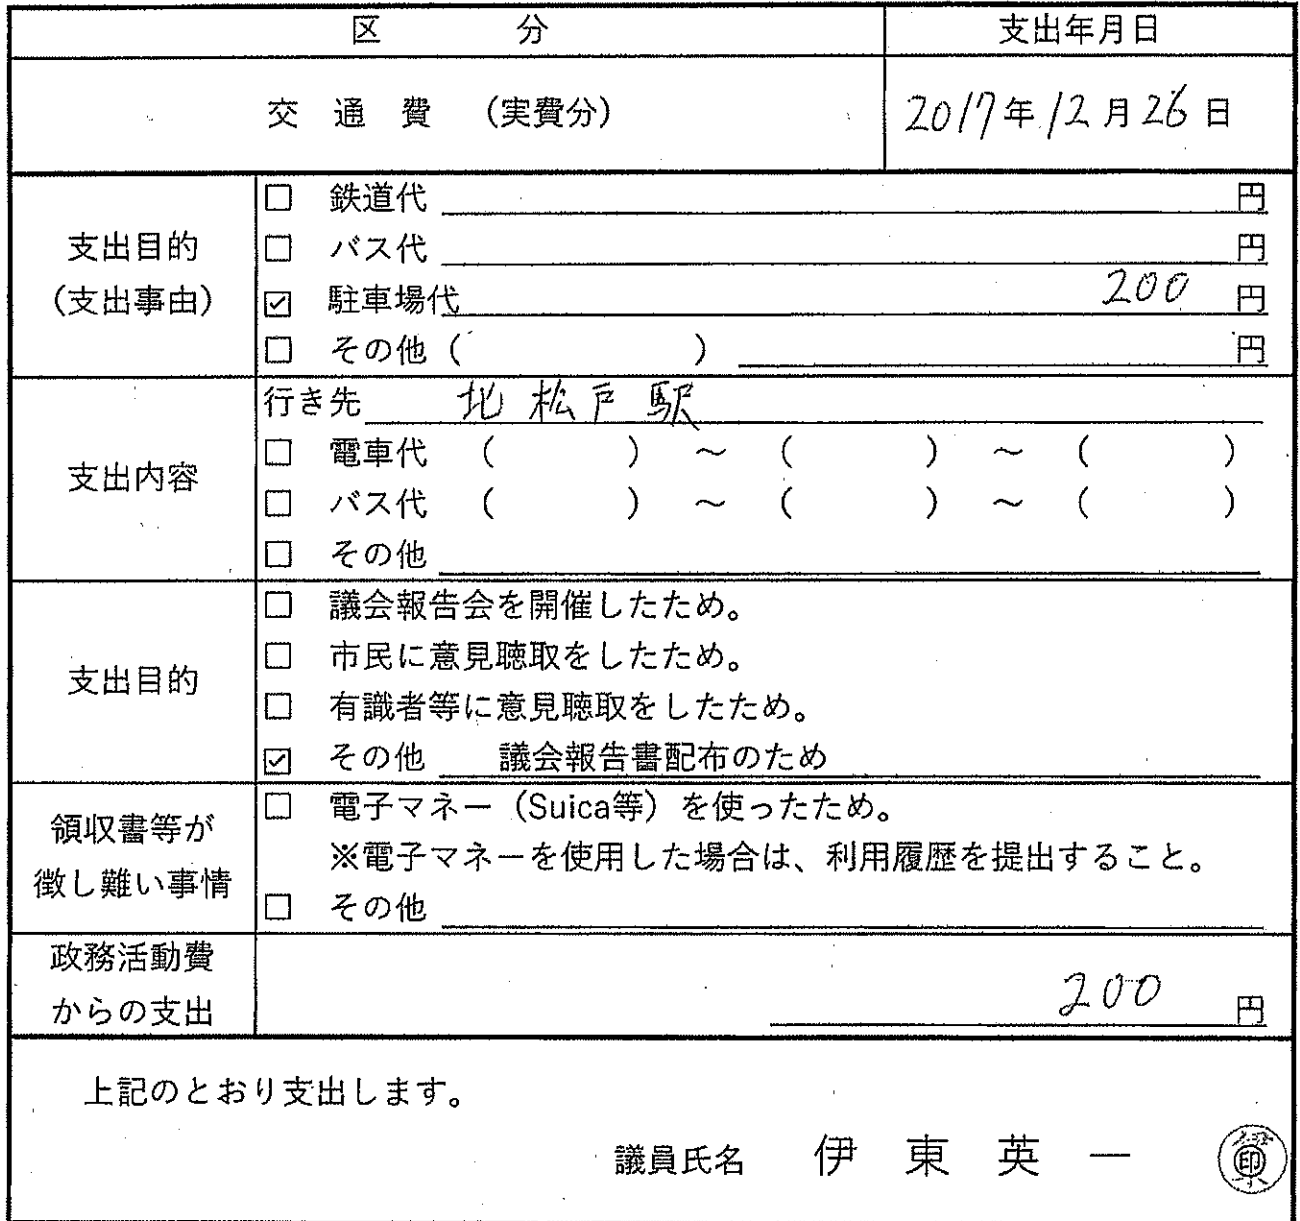 区 分 支出年月日
交 通 費 （実費分） 2017年 12月 26日
支出目的
（支出事由）
□ 鉄道代 円
□ バス代 円
☑ 駐車場代 200 円
□ その他（ ） 円
支出内容
行き先 北松戸駅
□ 電車代 （ ） ～ （ ） ～ （ ）
□ バス代 （ ） ～ （ ） ～ （ ）
□ その他
支出目的
□ 議会報告会を開催したため。
□ 市民に意見聴取をしたため。
□ 有識者等に意見聴取をしたため。
☑ その他 議会報告書配布のため
領収書等が
徴し難い事情
□ 電子マネー（Suica等）を使ったため。
※電子マネーを使用した場合は、利用履歴を提出すること。
□ その他
政務活動費
からの支出
200 円
上記のとおり支出します。
議員氏名 伊 東 英 一 印